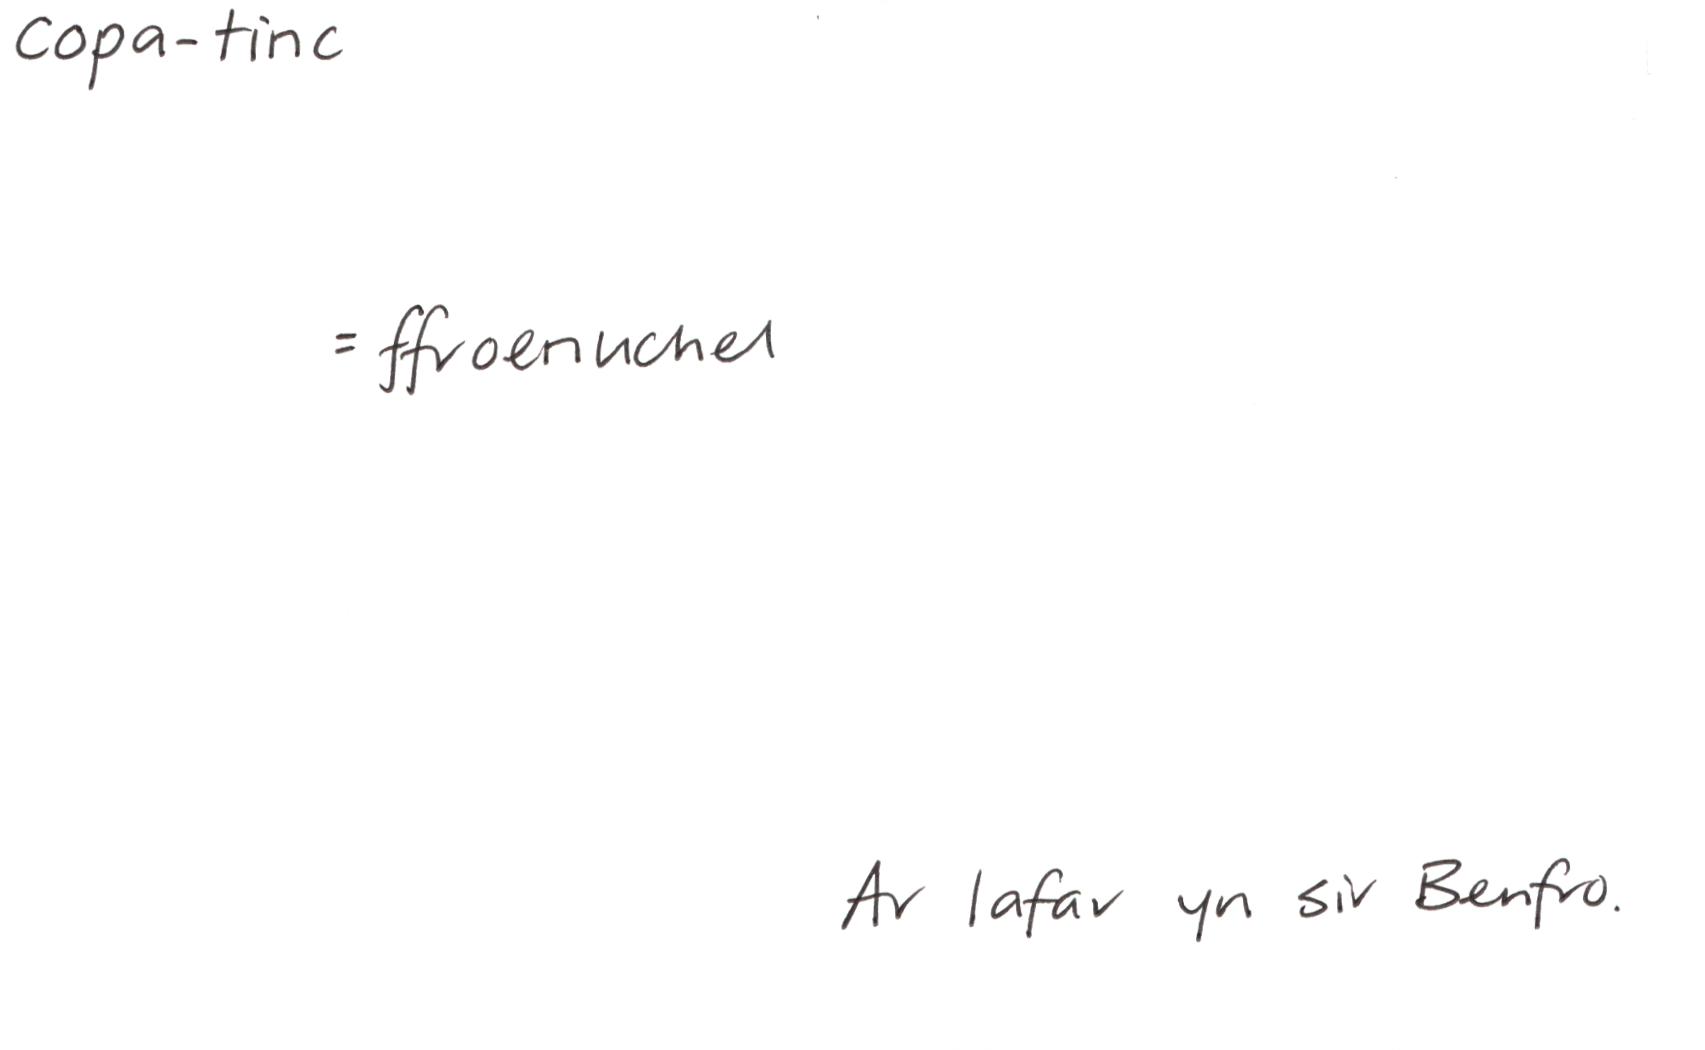 copa-tinc
= ffroenuchel
Ar lafar yn sir Benfro.